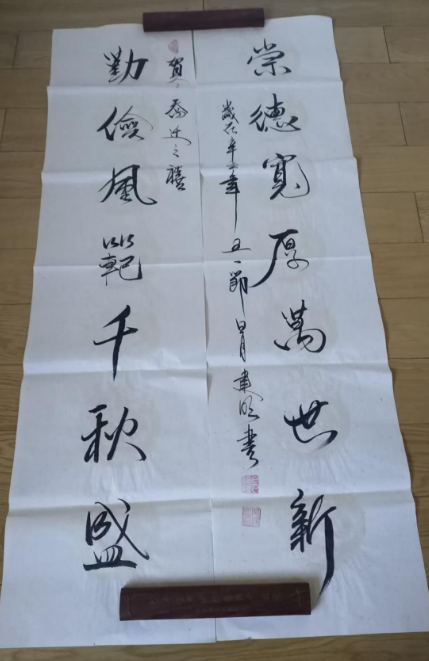 崇德寬厚萬世新
歲在 五一節 書
賀 喬迁之禧
勤儉風範千秋盛